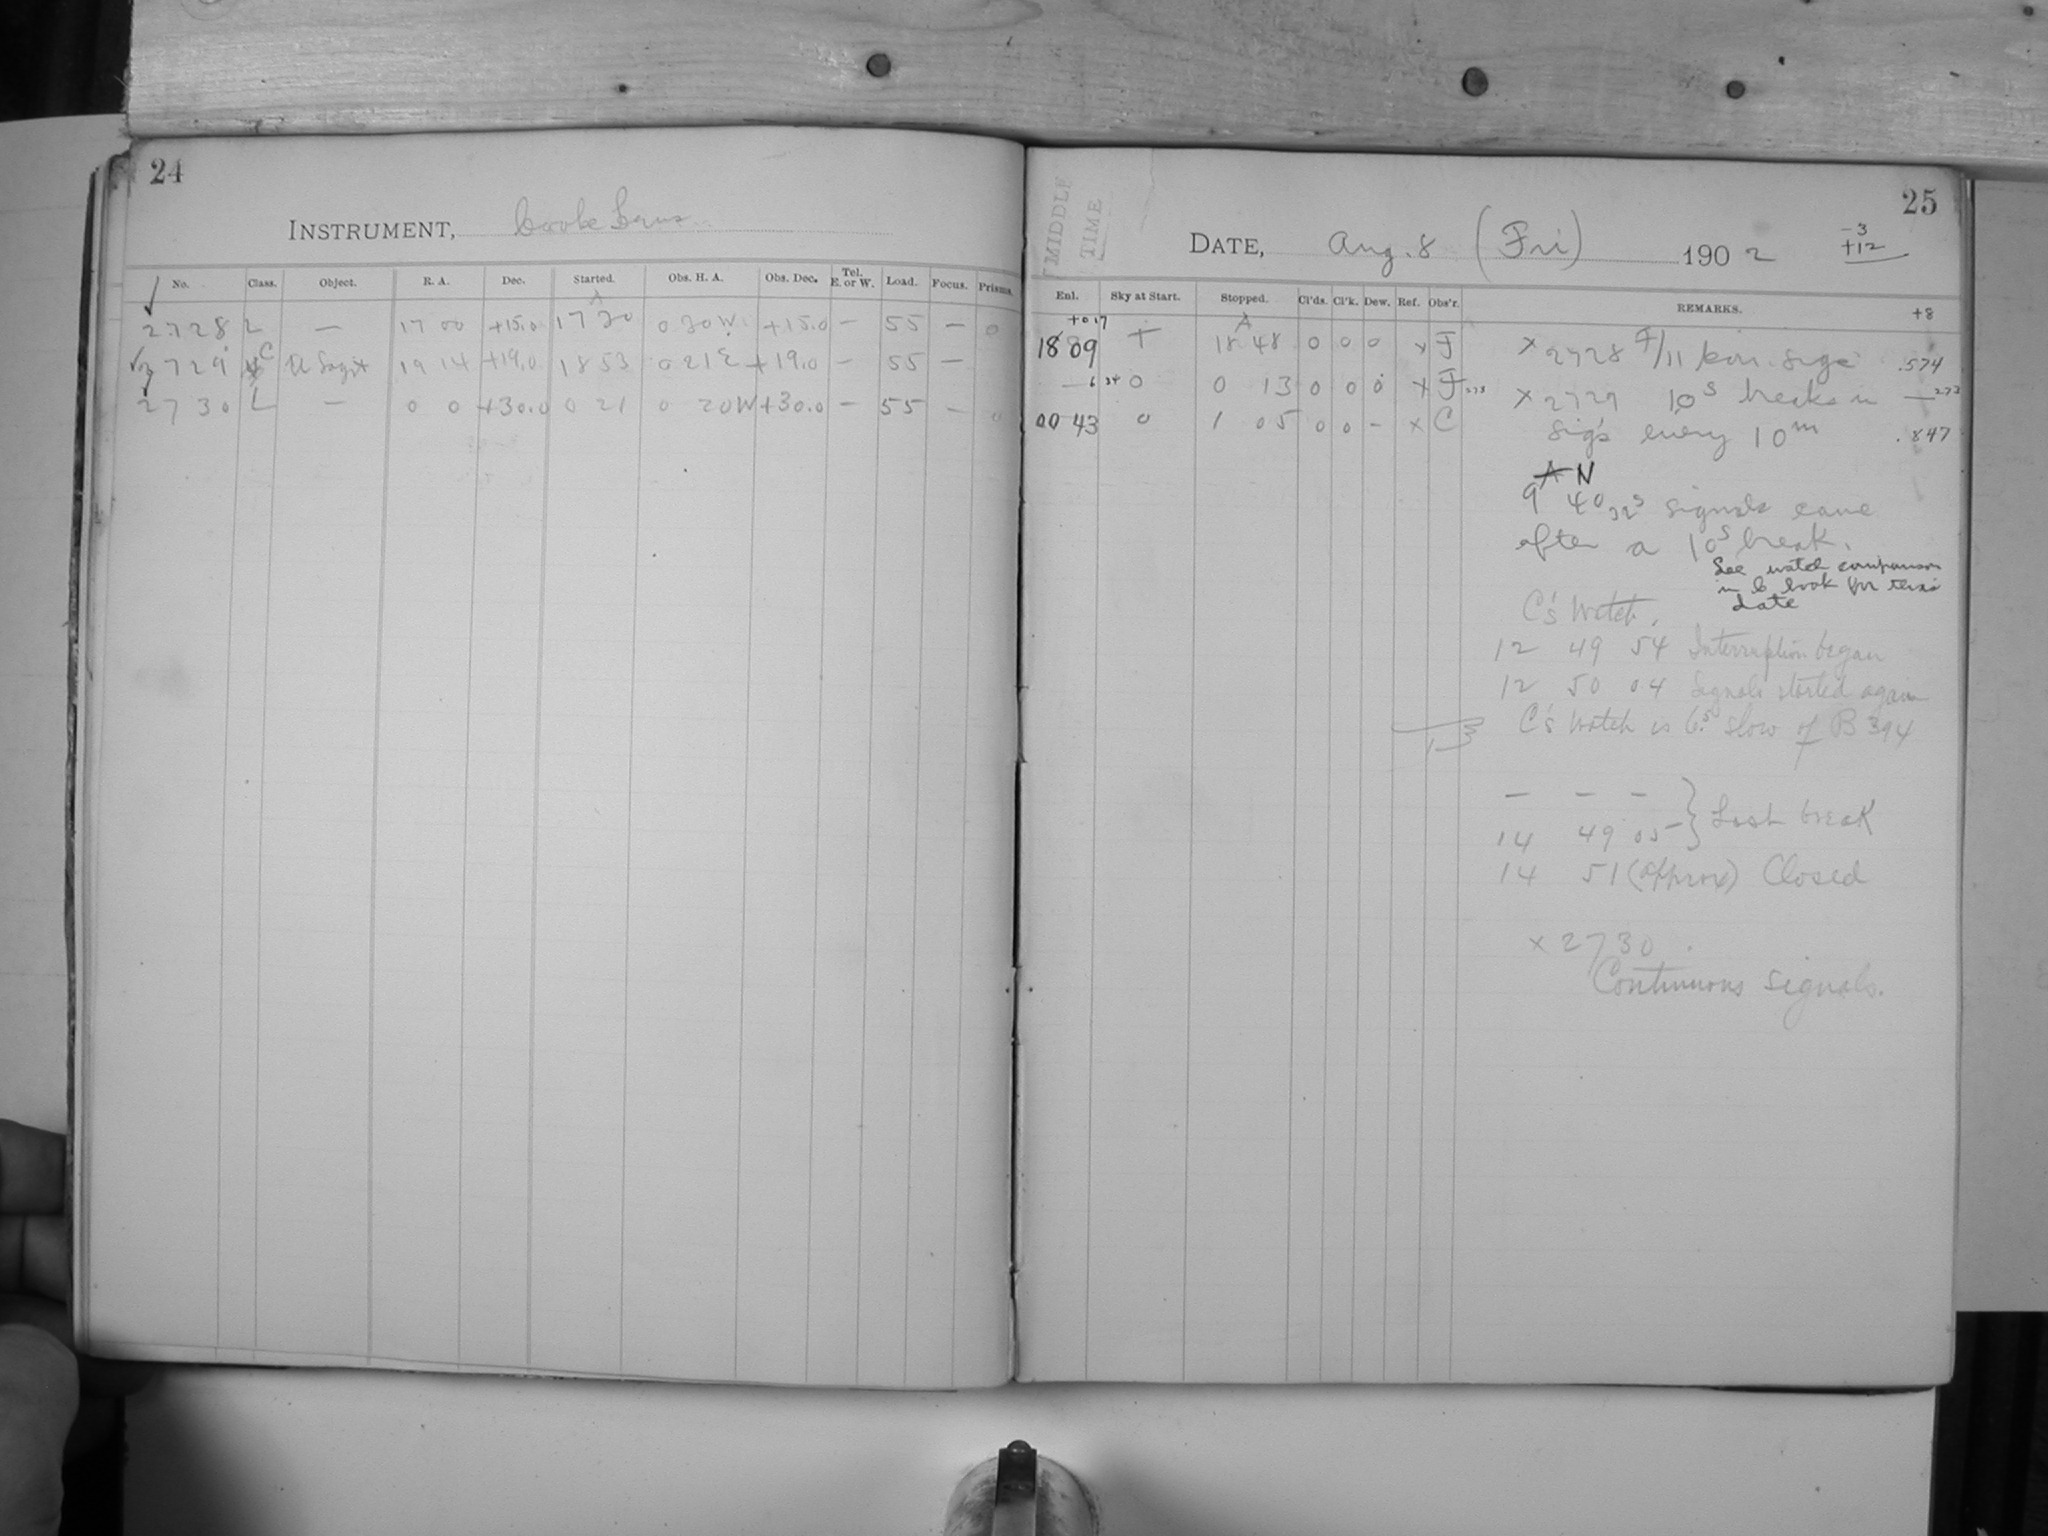 24
INSTRUMENT, Cooke Lens
No. Class. Object. R. A. Dec. Started. Obs. H. A. Obs. Dec. Tel. E. or W. Load. Focus. Prisms.
A
2728 L — 17 00 +15.0 17 30 0 30 W +15.0 — 55 — 0
2729 C U Sagit 19 14 +19.0 18 53 0 21 E +19.0 — 55 —
2730 L — 0 0 +30.0 0 21 0 20 W +30.0 — 55 — 0
25
MIDDLE
TIME
DATE, Aug. 8 (Fri) 1902
-3
+12
Enl. Sky at Start. Stopped. Cl'ds. Cl'k. Dew. Ref. Obs'r. REMARKS. +8
+017 A
18 09 + 18 48 0 0 0 x J x 2728 sigs .574
0 0 13 0 0 0 x J .273 x 2729 10s breaks in — 273
00 43 0 1 05 0 0 — x C sigs every 10m .847
A N
9 40 32s signals came
after a 10s break.
See watch comparison
in C book for this
date
C's Watch.
12 49 54 Interruption began
12 50 04 Signals started again
C's Watch is 6.s5 slow of B 394
— — — } Last break
14 49 05 }
14 51 (approx) Closed
x 2730.
Continuous signals.